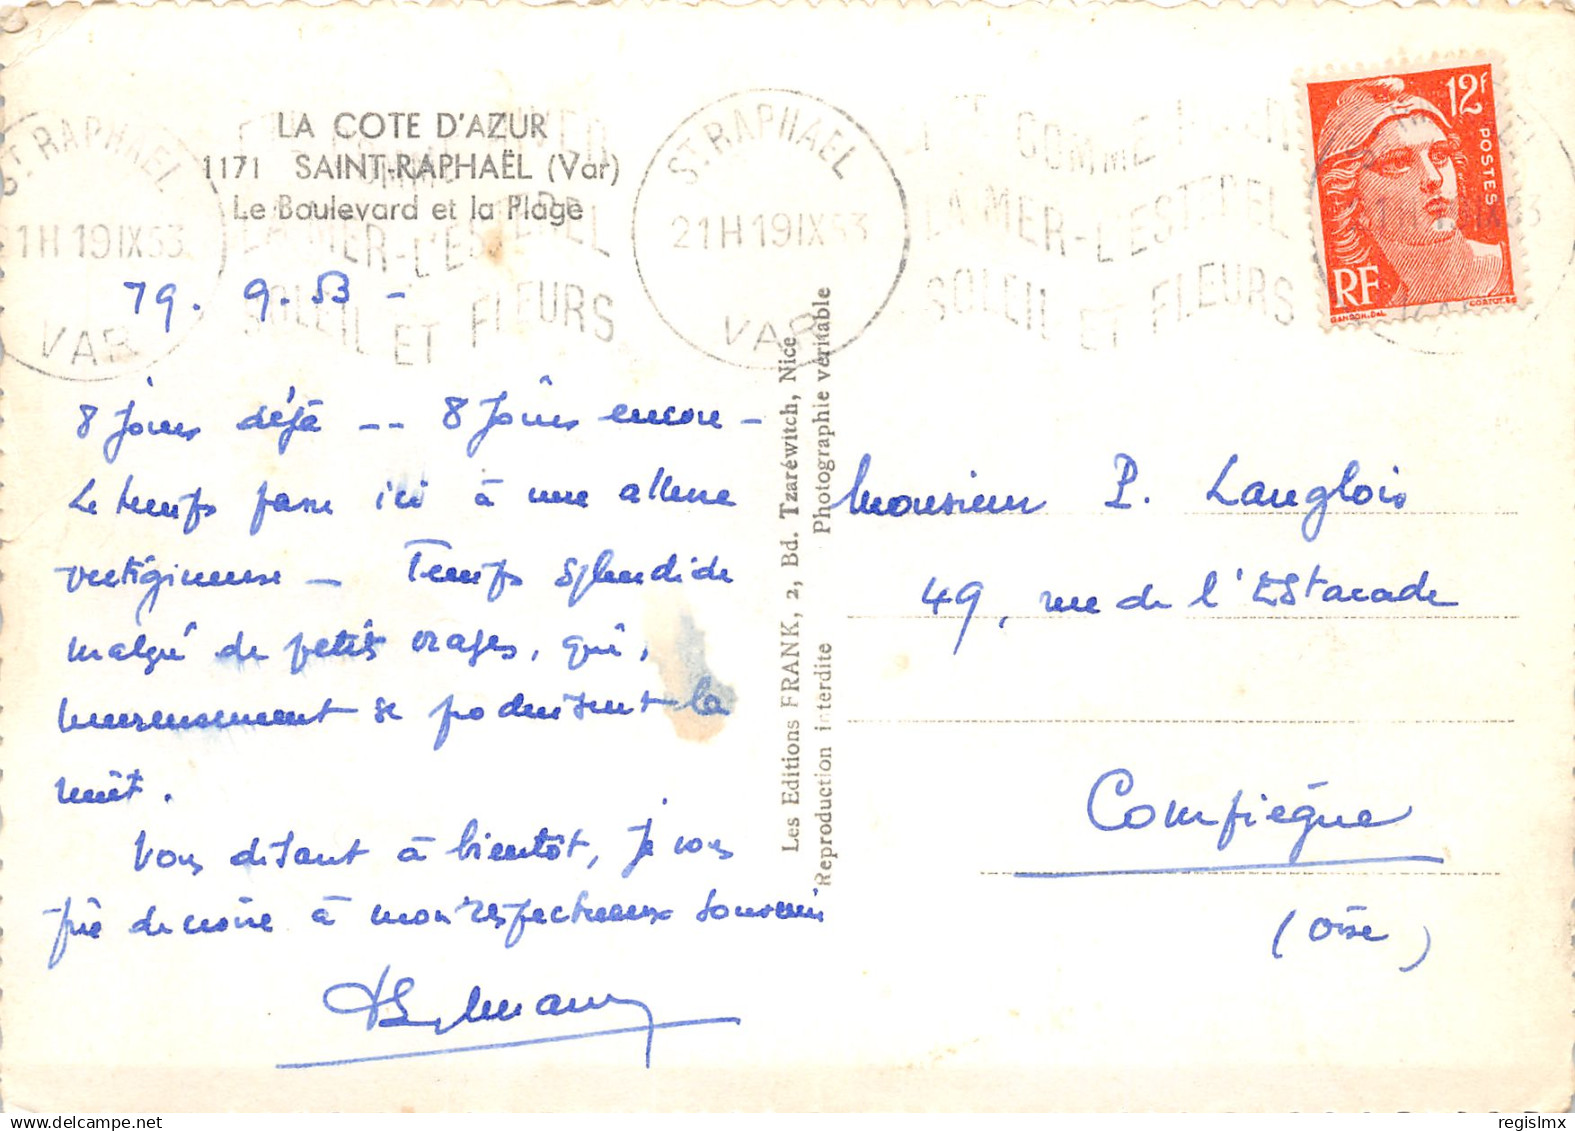 LA COTE D'AZUR
1171 SAINT-RAPHAËL (Var)
Le Boulevard et la Plage
ST RAPHAEL
21H 19 IX 53
VAR
LA MER - L'ESTEREL
SOLEIL ET FLEURS
12F
POSTES
RF
GANDON.DEL
CORTOT.SC
19.9.53 -
8 jours déjà -- 8 jours encore -
Le temps passe ici à une allure
vertigineuse - Temps splendide
malgré de petits orages, qui,
heureusement se produisent la
nuit.
Vous disant à bientôt, je vous
prie de croire à mon respectueux souvenir
Les Editions FRANK, 2, Bd. Tzaréwitch, Nice
Reproduction interdite Photographie véritable
Monsieur P. Langlois
49, rue de l'Estacade
Compiègne
(Oise)
regislmx